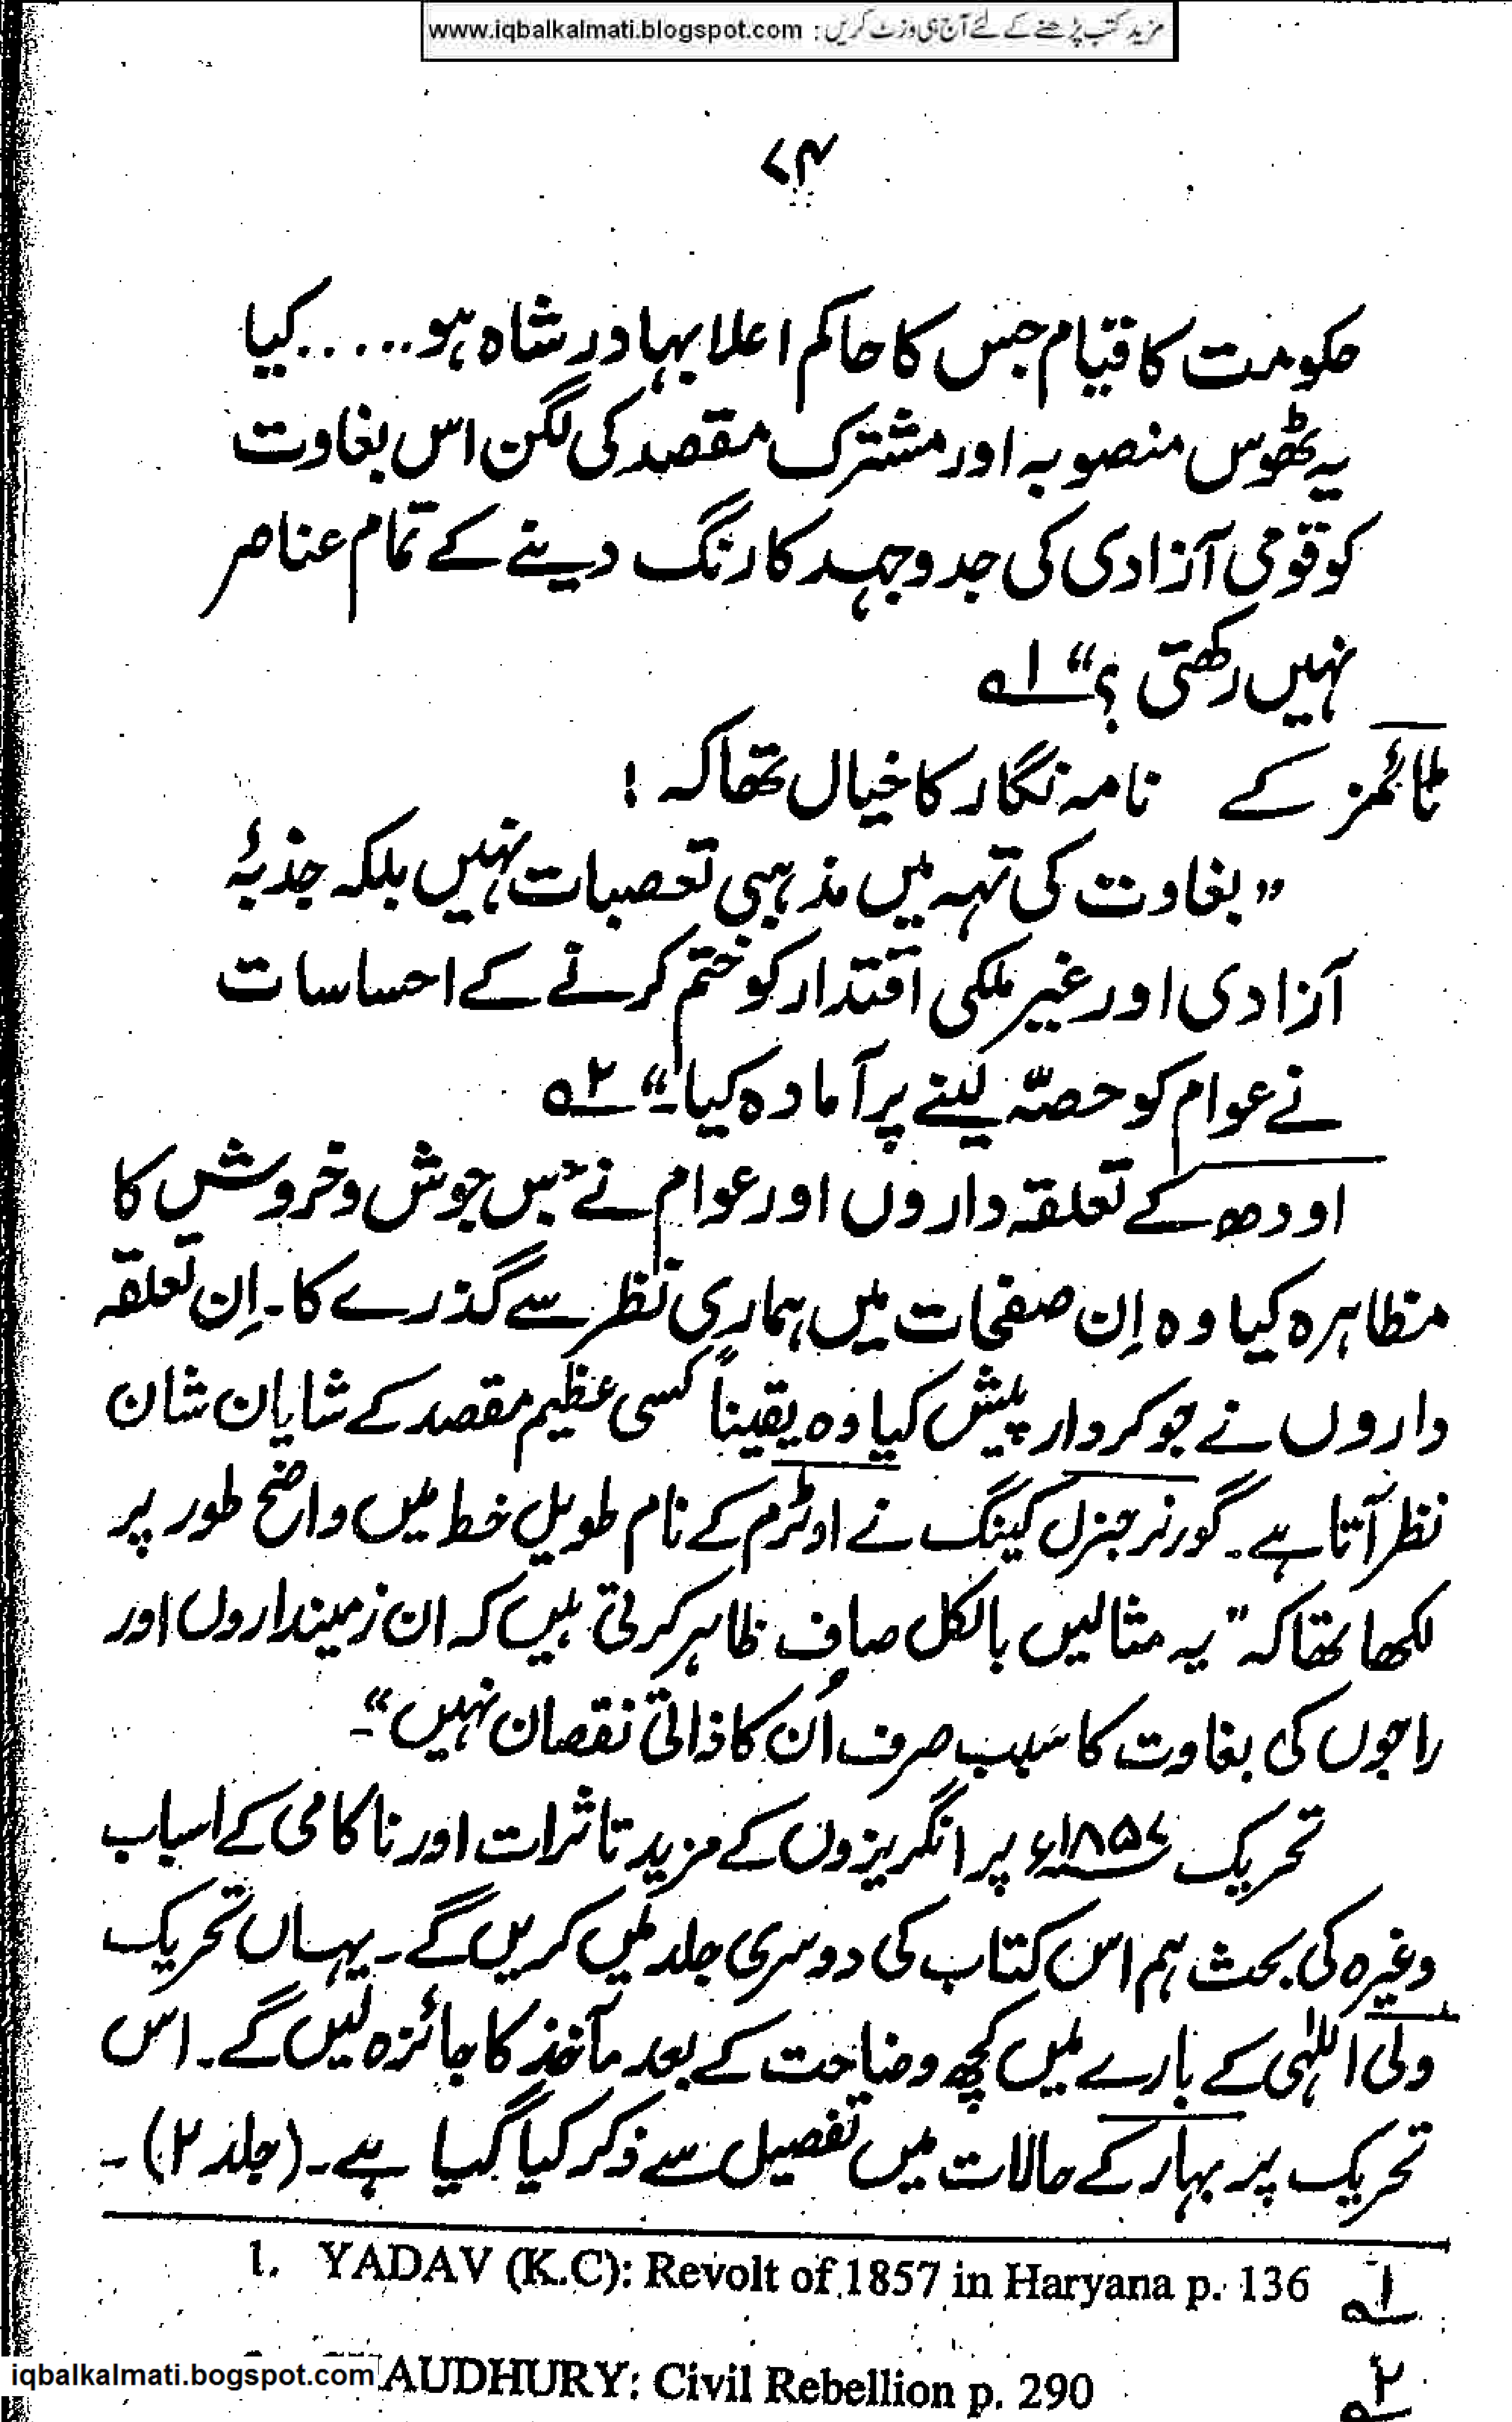 مزید کتب پڑھنے کے لئے آج ہی وزٹ کریں : www.iqbalkalmati.blogspot.com
۷۴
حکومت کا قیام جس کا حاکم اعلا بہادر شاہ ہو.....کیا
یہ ٹھوس منصوبہ اور مشترک مقصد کی لگن اس بغاوت
کو قومی آزادی کی جدوجہد کا رنگ دینے کے تمام عناصر
نہیں رکھتی ؟“ ۱؎
ٹائمز کے نامہ نگار کا خیال تھا کہ :
”بغاوت کی تہہ میں مذہبی تعصبات نہیں بلکہ جذبۂ
آزادی اور غیر ملکی اقتدار کو ختم کرنے کے احساسات
نے عوام کو حصّہ لینے پر آمادہ کیا۔“ ۲؎
اودھ کے تعلقہ داروں اور عوام نے جس جوش و خروش کا
مظاہرہ کیا وہ اِن صفحات میں ہماری نظر سے گذرے گا۔ اِن تعلقہ
داروں نے جو کردار پیش کیا وہ یقیناً کسی عظیم مقصد کے شایان شان
نظر آتا ہے۔ گورنر جنرل کینگ نے اوٹرم کے نام طویل خط میں واضح طور پر
لکھا تھا کہ ”یہ مثالیں بالکل صاف ظاہر کرتی ہیں کہ ان زمینداروں اور
راجوں کی بغاوت کا سبب صرف اُن کا ذاتی نقصان نہیں“۔
تحریک ۱۸۵۷ء پر انگریزوں کے مزید تاثرات اور ناکامی کے اسباب
وغیرہ کی بحث ہم اس کتاب کی دوسری جلد میں کریں گے۔ یہاں تحریک
ولی اللٰہی کے بارے میں کچھ وضاحت کے بعد مآخذ کا جائزہ لیں گے۔ اس
تحریک پر بہار کے حالات میں تفصیل سے ذکر کیا گیا ہے۔ (جلد ۲)۔
1. YADAV (K.C): Revolt of 1857 in Haryana p. 136 ۱؎
AUDHURY: Civil Rebellion p. 290 ۲؎
iqbalkalmati.bogspot.com